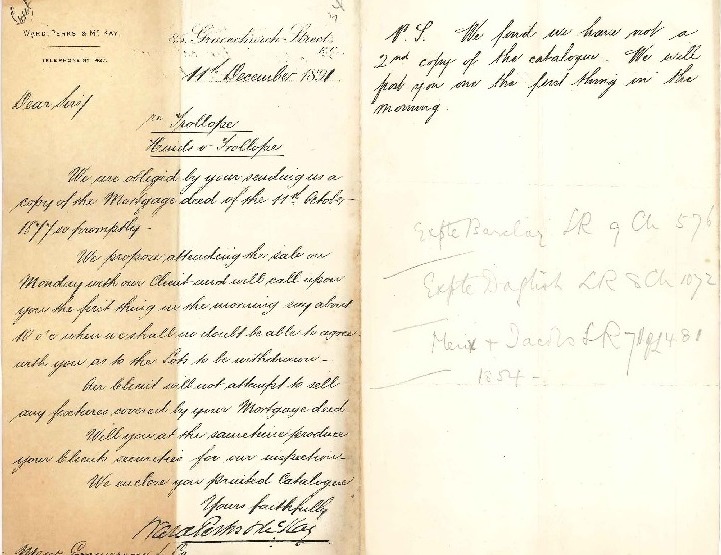 WARD, PERKS & McKAY.
Gracechurch Street,
E.C.
11th December 1891.
Dear Sirs
re Trollope
Hands v Trollope
We are obliged by your sending us a
copy of the Mortgage deed of the 11th October
1877 so promptly-
We propose attending the sale on
Monday with our Client and will call upon
you the first thing in the morning say about
10 o'c when we shall no doubt be able to agree
with you as to the Lots to be withdrawn-
Our Client will not attempt to sell
any fixtures covered by your Mortgage deed
Will you at the same time produce
your Clients securities for our inspection
We enclose you Printed Catalogue
Yours faithfully
Ward Perks & McKay
P.S. We find we have not a
2nd copy of the catalogue. We will
post you one the first thing in the
morning.
Expte Barclay LR 9 Ch 576
Expte Daglish LR 8 Ch 1072
Meux & Jacobs LR 7 481